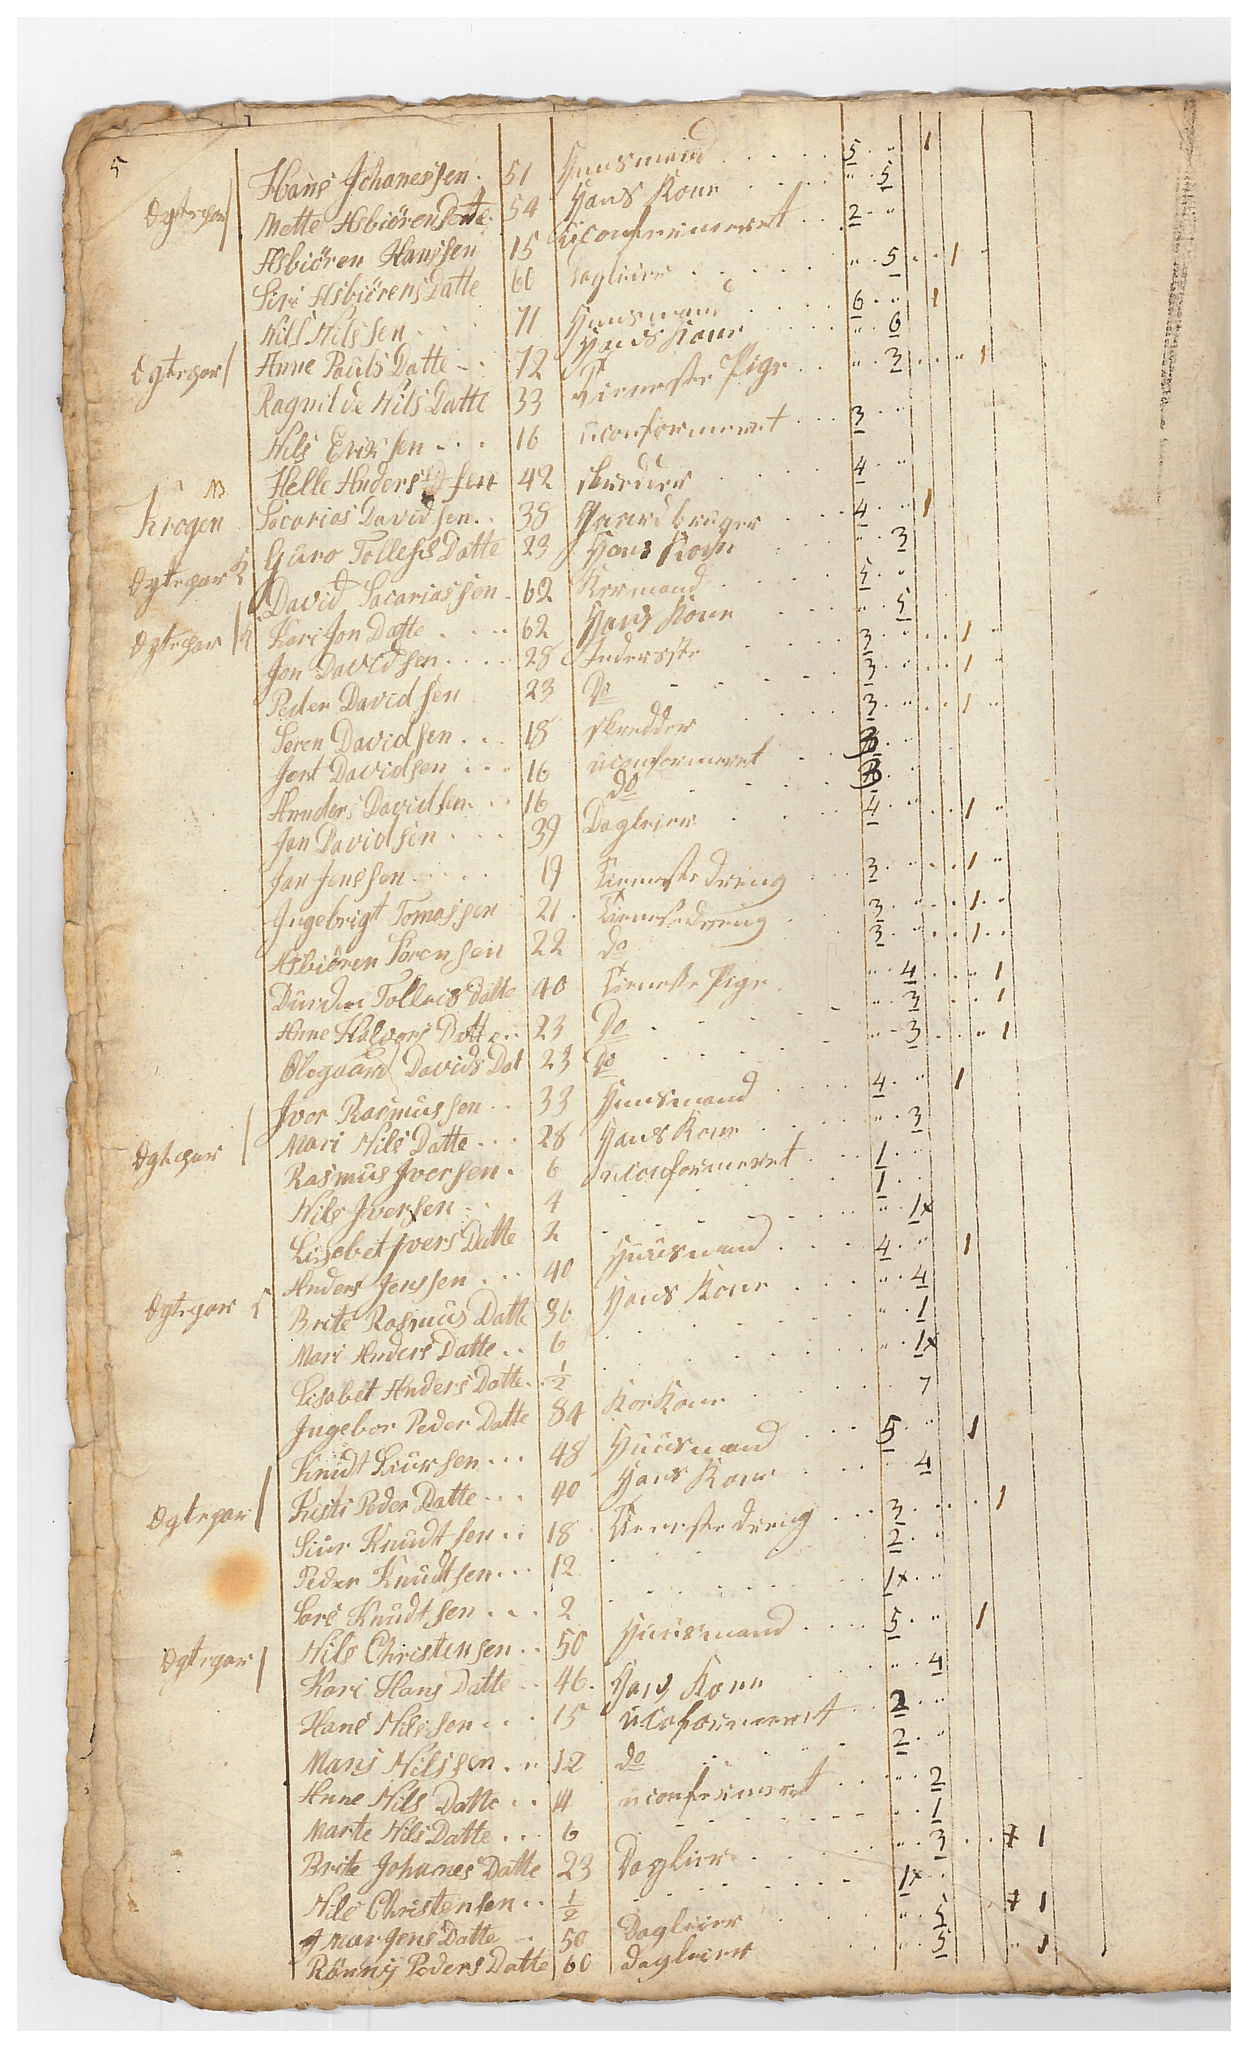 5
Hans Johanessen . 51 Huusmand . . . . . 5 . „ 1
Ægtepar Mette Asbiörens Datte . 54 Hans Kone . . . . „ 5
Asbiören Hanssen 15 uConfermeret . . 2 . „
Siri Asbiörens Datte 60 Dagleier . . . . „ . 5 . . 1 „
Nils Nilssen . . 71 Huusmand . . . 6 . „ 1
Ægtepar Anne Pauls Datte . . 72 Hans Kone . . . . „ 6
Ragnilde Nils Datte 33 Tieneste Pige . . „ . 3 . . „ 1
Nils Erixsen . . . 16 uconformeret . . . 3 . „
Helle Anders sen 42 skredder . . . 4 . „
Krogen 13 Sacarias Davidsen . . 38 Gaardbruger . . . 4 . „ 1
Ægtepar Guro Tollefs Datte 23 Hans Kone . . „ 3
David Sacariassen . 62 Kermand . . . . 5 . „
Ægtepar Kari Jon Datte . . . . 62 Hans Kone . . . . „ 5
Jon Davidsen . . . . 28 Inderste . . . 3 . „ . . 1 „
Peder Davidsen 23 Do . . . . 3 . „ . . 1 „
Søren Davidsen . . . 18 skredder . . . 3 . „ . . 1 „
Jent Davidsen . . . 16 uconformeret . . „
Annders Davidsen . . . 16 do . . . . „
Jan Davidsen . . . 39 Dagleier . . . 4 . „ . . 1 „
Jan Jenssen . . . . . 19 Tieneste dreng . . . 3 . „ . . 1 „
Ingebrigt Tomassen 21 . Tienestedreng . 3 . „ . . 1 . .
Asbiören Sörensen 22 do . . . 3 . „ . . 1 . .
Tolleis Datte 40 Tieneste Pige . „ . 4 . . . „ 1
Anne Halvors Datte . . 23 Do . . . . „ . 3 . . . 1
Olegaard Davids Dat 23 Do . . . . „ . 3 . . „ 1
Iver Rasmussen . . 33 Huusmand . . . . 4 . „ 1
Ægtepar Mari Nils Datte . . . 28 Hans Kone . . . . „ . 3
Rasmus Iversen . 6 uconformeret . . 1 . „
Nils Iversen . . 4 . . . . 1 . .
Lisebet Ivers Datte 2 . . . . „ 1x
Anders Jenssen . . . 40 Huusmand . . . . 4 . „ 1
Ægtepar Brite Rasmus Datte 36 Hans Kone . . . „ . 4
Mari Anders Datte . . 6 . . . . „ . 1
Lisabet Anders Datte . . 1/2 . . . . „ . 1x
Ingebor Peder Datte 84 Kor Kone . . . . 7
Knudt Siursen . . . 48 Huusmand . . . 5 . „ 1
Ægtepar Kisti Peder Datte . . . 40 Hans Kone . . . . 4
Siur Knudtsen . . 18 Tieneste dreng . . . 3 . . . . 1
Peder Knudtsen . . . 12 . . . . 2 . „
Lars Knudtsen . . . 2 . . . . 1x . „
Nils Christensen . . 50 Huusmand . . . . 5 . „ 1
Ægtepar Kari Hans Datte . . 46 . Hans Kone . . . „ . 4
Hans Nilssen . . . 15 uConformeret . . 2 . „
Mans Nilssen . . „ 12 do . . . . 2 . „
Anne Nils Datte . . 14 uconfermeret . . . „ . 2
Marte Nils Datte . . . 6 . . . . „ 1
Brite Johanes Datte 23 Daglier . . . . „ . 3 . . . x 1
Nils Christensen . . 1/2 . . . . 1x . „
Marjens Datte . . 50 Dagleier . . . „ . 5 x 1
Rönnj Peders Datte 60 dagleiert . . . . „ . 5 „ 1